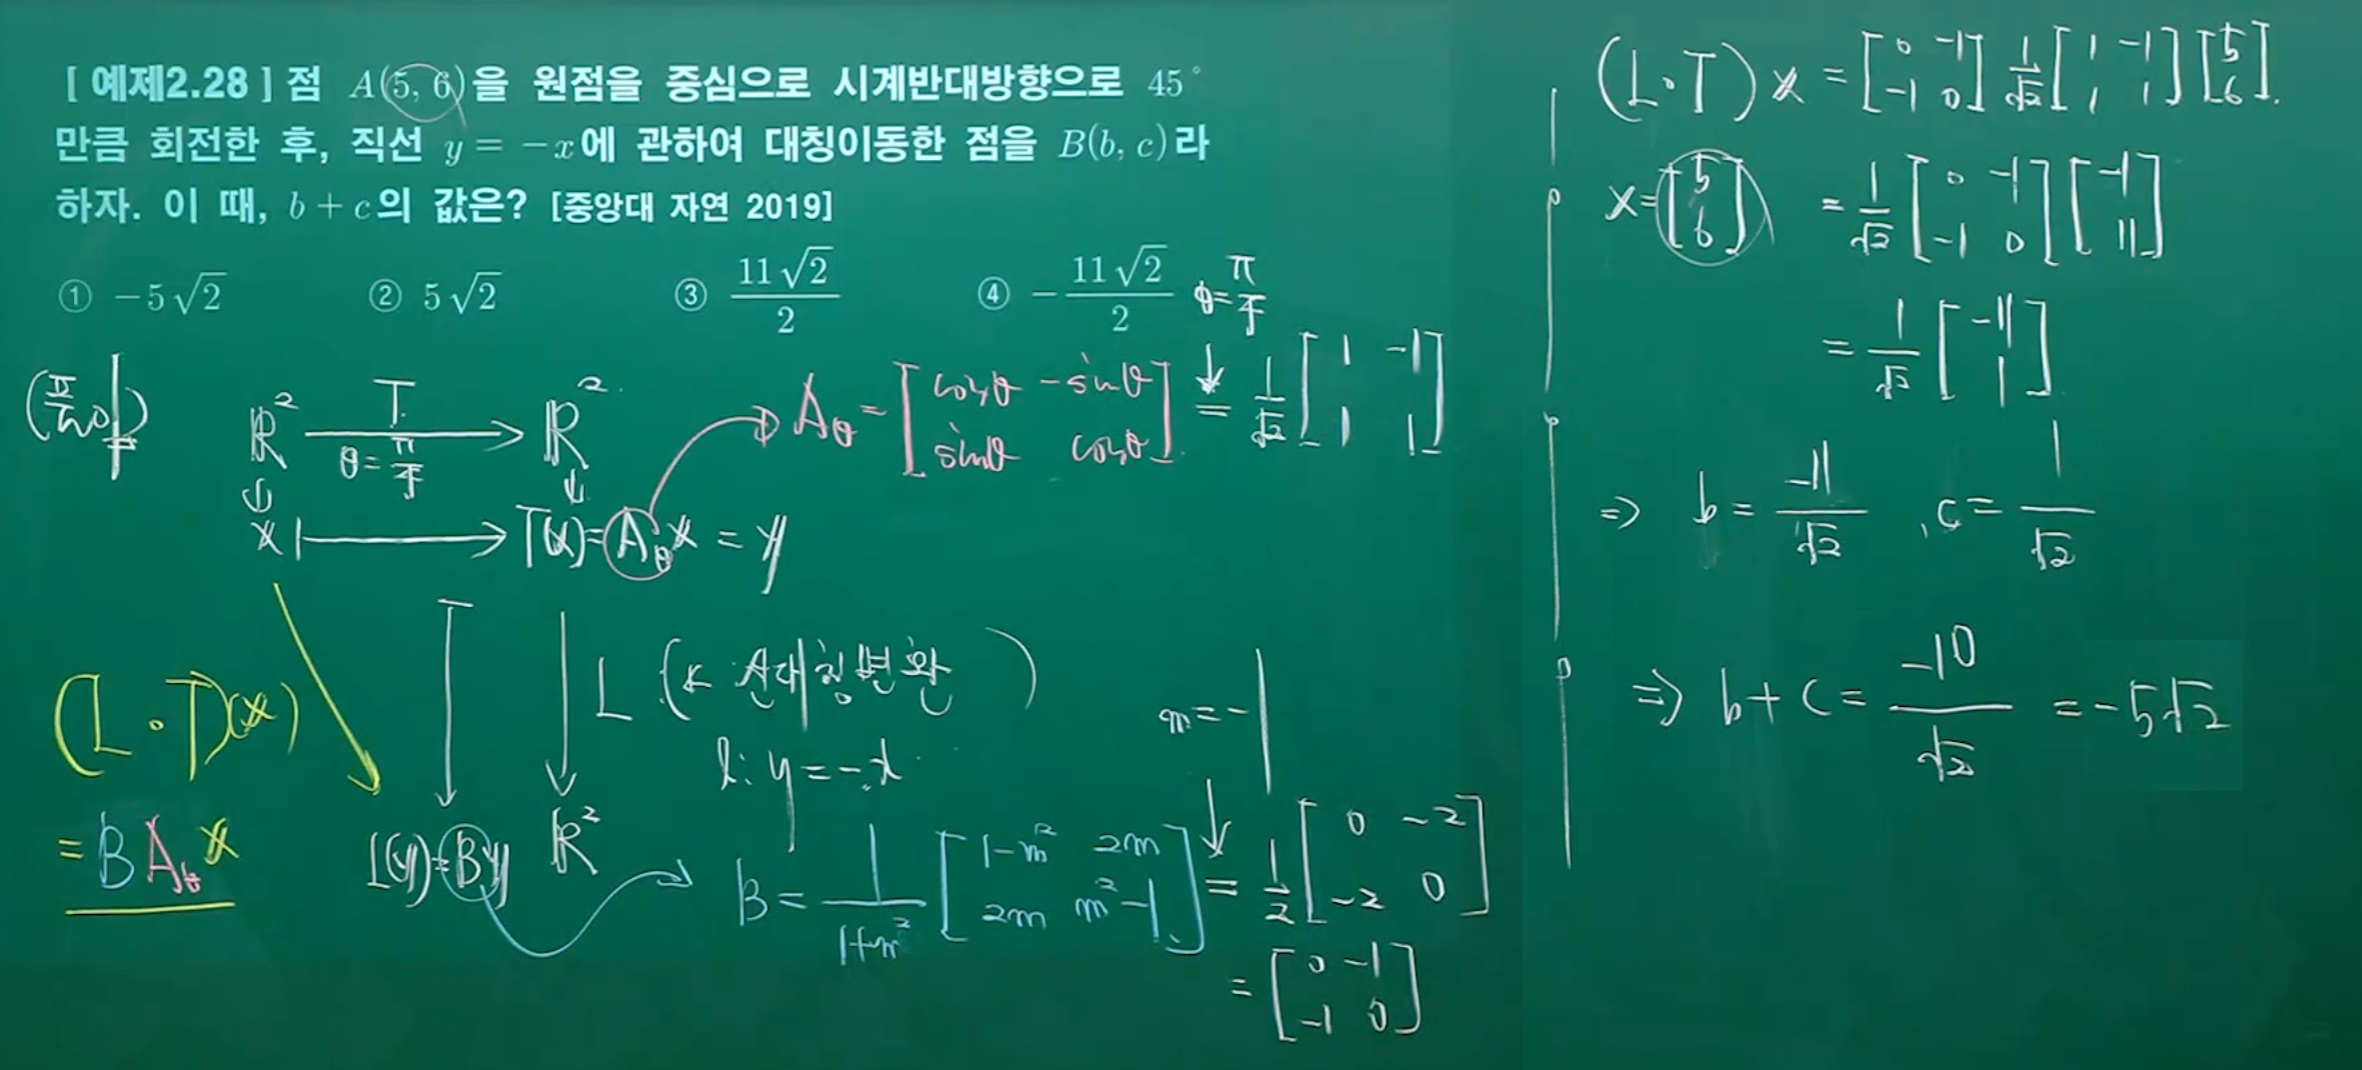 [ 예제2.28 ] 점 A(5, 6)을 원점을 중심으로 시계반대방향으로 45°
만큼 회전한 후, 직선 y = −x에 관하여 대칭이동한 점을 B(b, c)라
하자. 이 때, b + c의 값은? [중앙대 자연 2019]
① −5√2 ② 5√2 ③ 11√2/2 ④ −11√2/2
(풀이)
R² T R²
θ = π/4
x ↦ T(x) = A_θ x = y
A_θ = [cosθ −sinθ; sinθ cosθ] = 1/√2 [1 −1; 1 1]
θ = π/4
L (선대칭변환)
l: y = −x
m = −1
(L∘T)(x)
= B A_θ x
L(y) = By R²
B = 1/(1+m²) [1−m² 2m; 2m m²−1] = 1/2 [0 −2; −2 0]
= [0 −1; −1 0]
(L∘T) x = [0 −1; −1 0] 1/√2 [1 −1; 1 1] [5; 6].
x = [5; 6] = 1/√2 [0 −1; −1 0] [−1; 11]
= 1/√2 [−11; 1]
⇒ b = −11/√2 , c = 1/√2
⇒ b + c = −10/√2 = −5√2